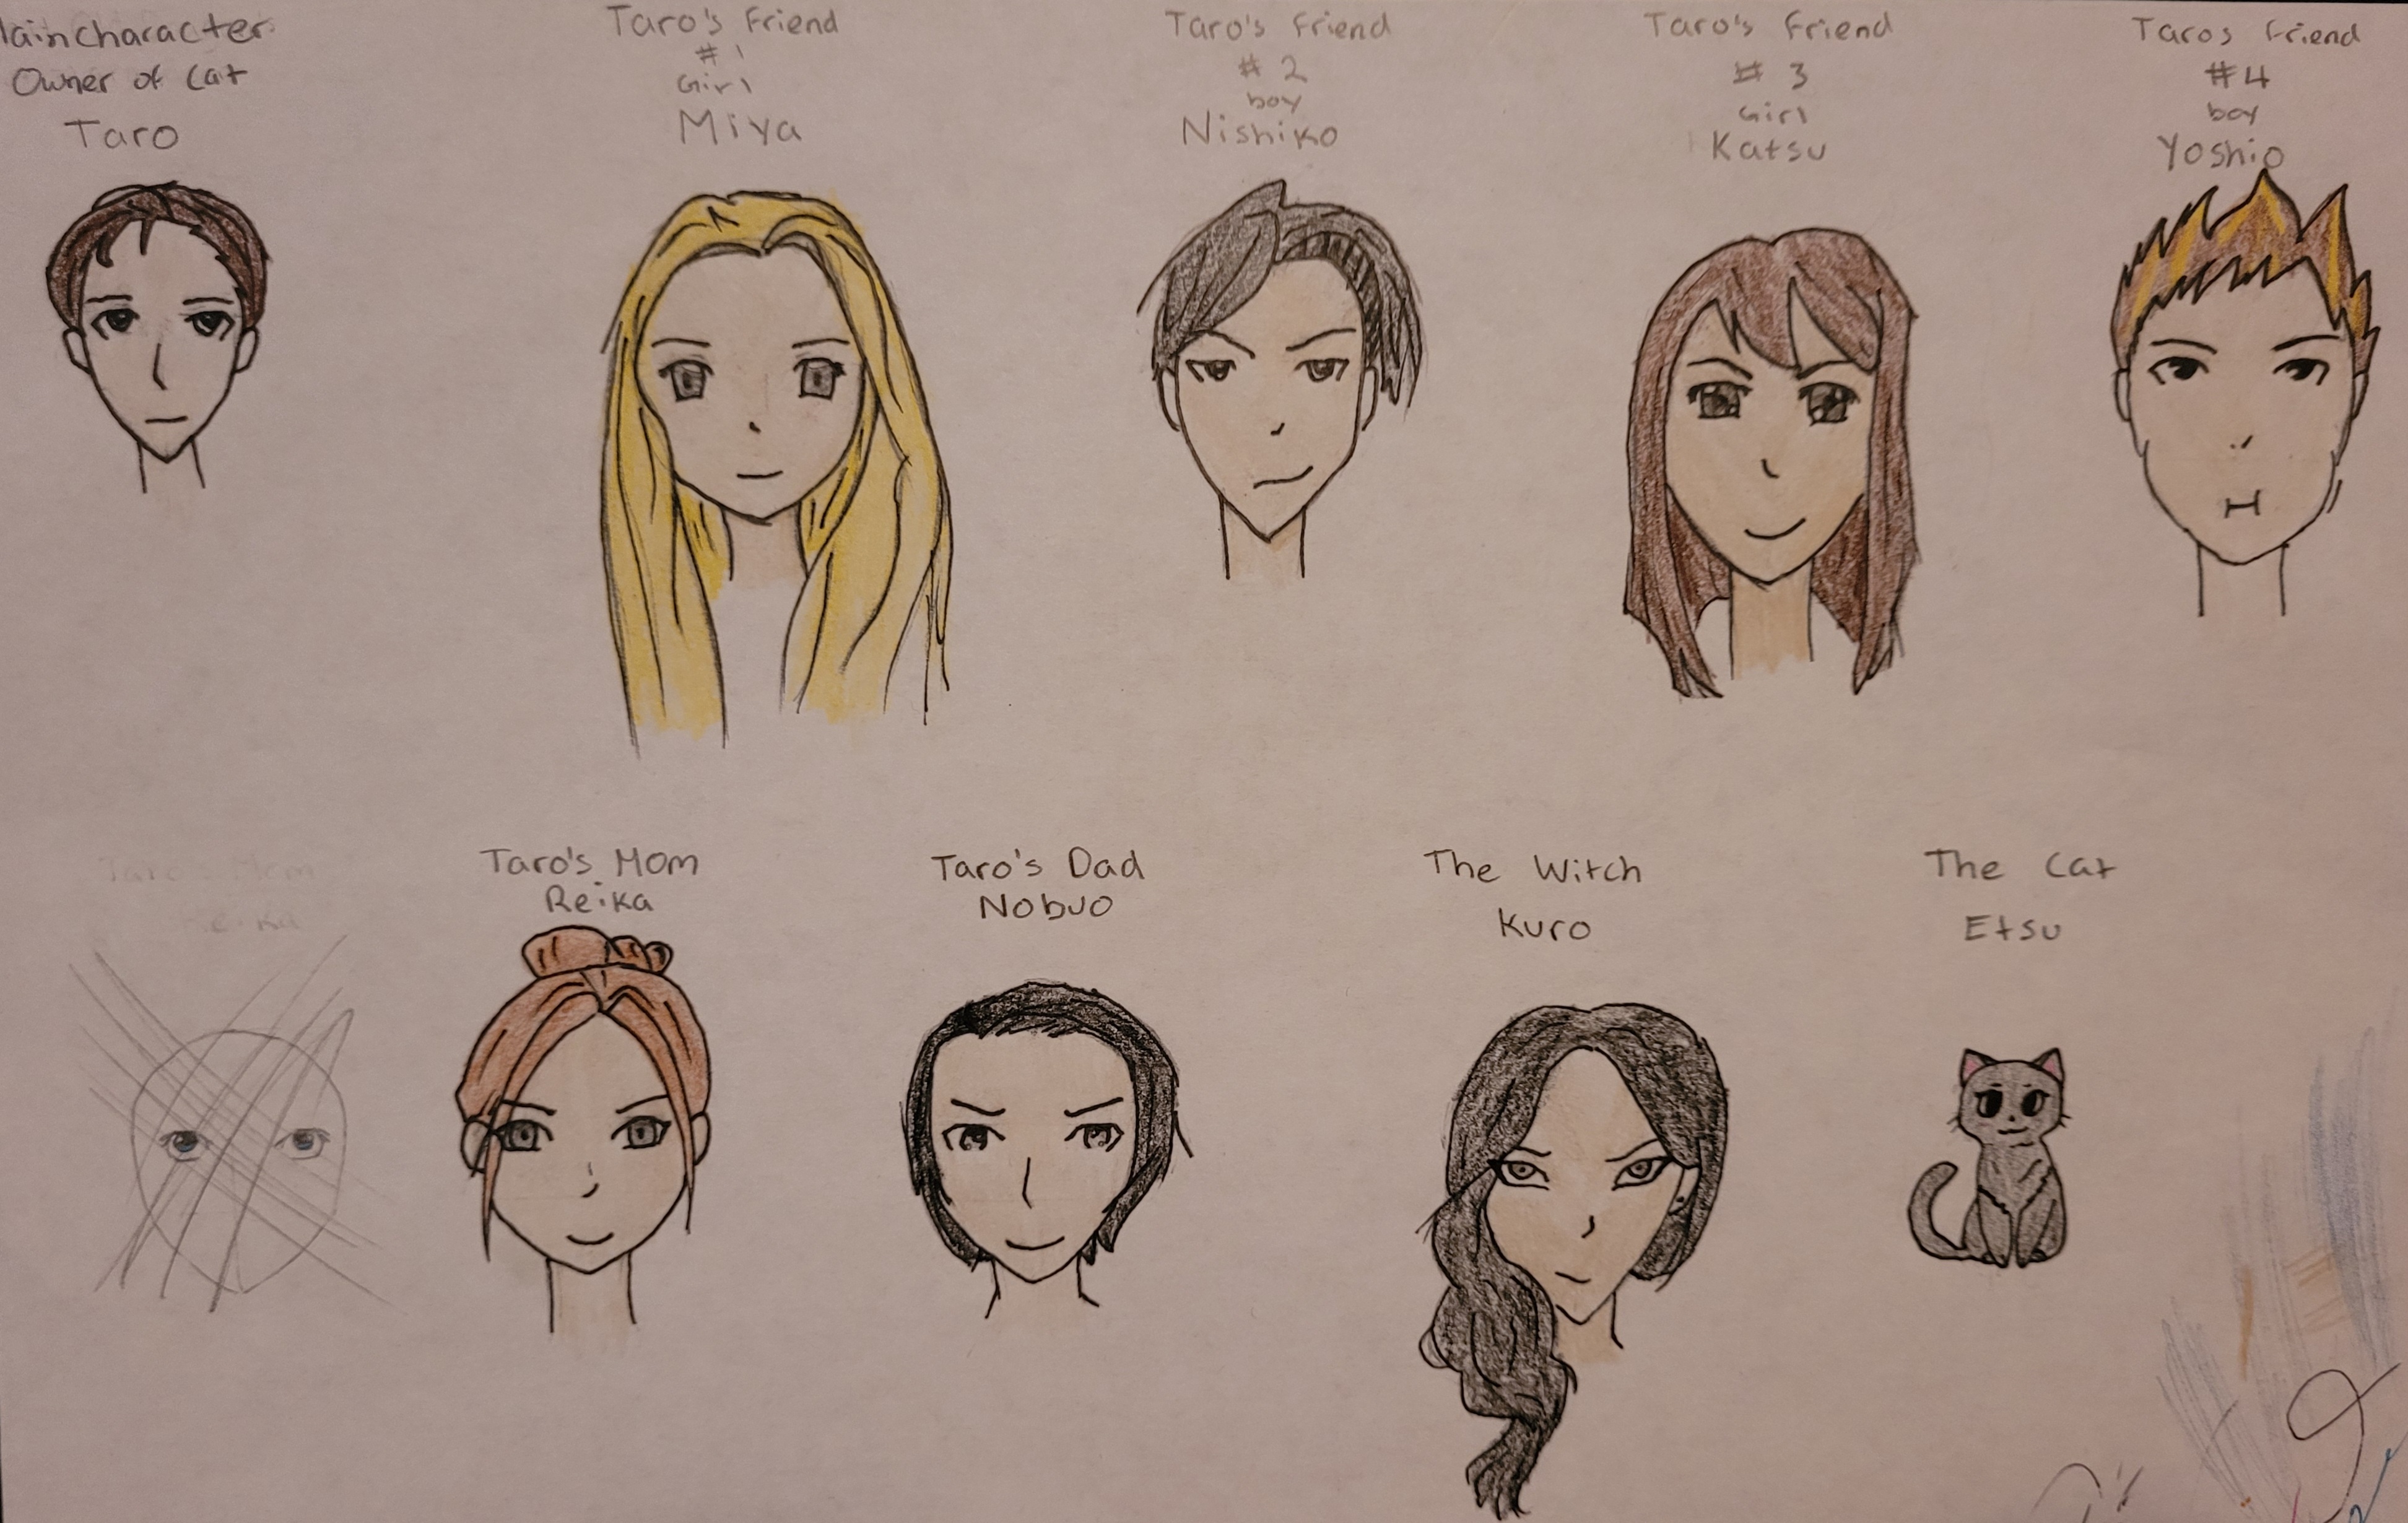 Main character
Owner of Cat
Taro
Taro's Friend
# 1
Girl
Miya
Taro's Friend
# 2
boy
Nishiko
Taro's Friend
# 3
Girl
Katsu
Taros Friend
#4
boy
Yoshio
Taro's Mom
Reika
Taro's Mom
Reika
Taro's Dad
Nobuo
The Witch
Kuro
The Cat
Etsu